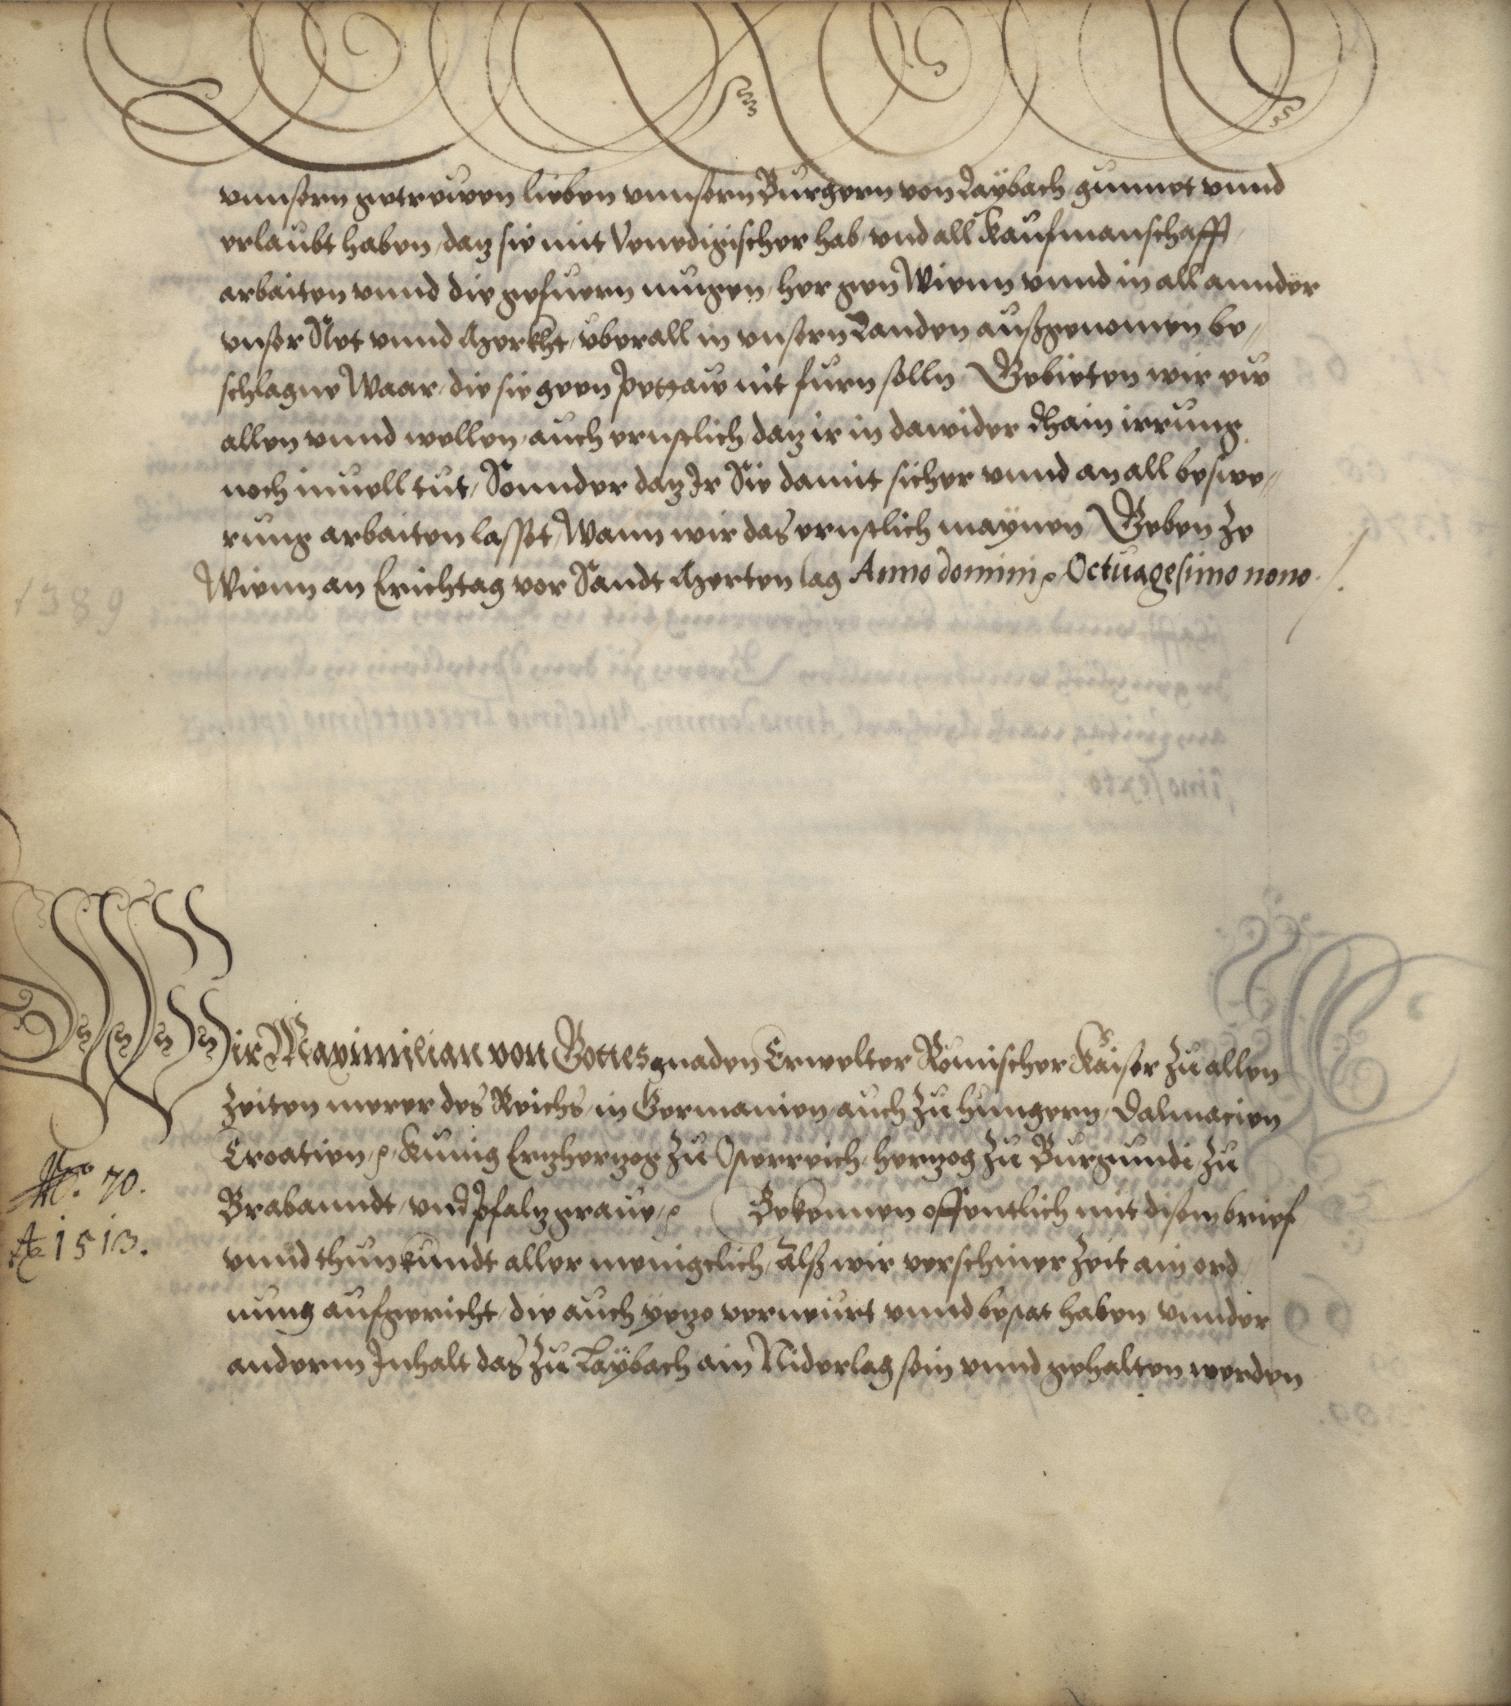 vnnsern getrewen lieben vnnsern Burgern von Laÿbach gunnet vnnd
erlaubt haben, daz sie mit Venedigischer hab vnd all Kaufmanschafft
arbaiten vnnd die gefuern mugen, her gen Wienn vnnd in all annder
vnser Stet vnnd Merkht, vberall in vnsern Landen außgenomen be„
schlagne Waar, die sie geen Pettaw nit furn solln Gebieten wir ew
allen vnnd wellen auch ernstlich daz ir in dawider khain irrung
noch inuell tut, Sonnder daz Ir Sie damit sicher vnnd an all beswe„
rung arbaiten lasset, Wann wir das ernstlich maÿnen Geben ze
Wienn an Erichtag vor Sandt Merten tag Anno domini Octuagesimo nono.
1389
Wir Maximilian von Gottes gnaden Erwelter Römischer Kaiser zu allen
Zeiten merer des Reichs, in Germanien, auch zu Hungern, Dalmacien
No. 70.
Croatien, Kunig Ertzhertzog zu Osterreich, hertzog zu Burgundi, zu
Brabanndt, vnd Pfaltzgraue, Bekennen offentlich mit disem brief
Ao 1513.
vnnd thun kundt aller menigclich, Alß wir verschiner Zeit ain ord
nung aufgericht, die auch yetzo verneurt vnnd bestat haben vnnder
anderm Inhalt das zu Laÿbach ain Niderlag sein vnnd gehalten werden